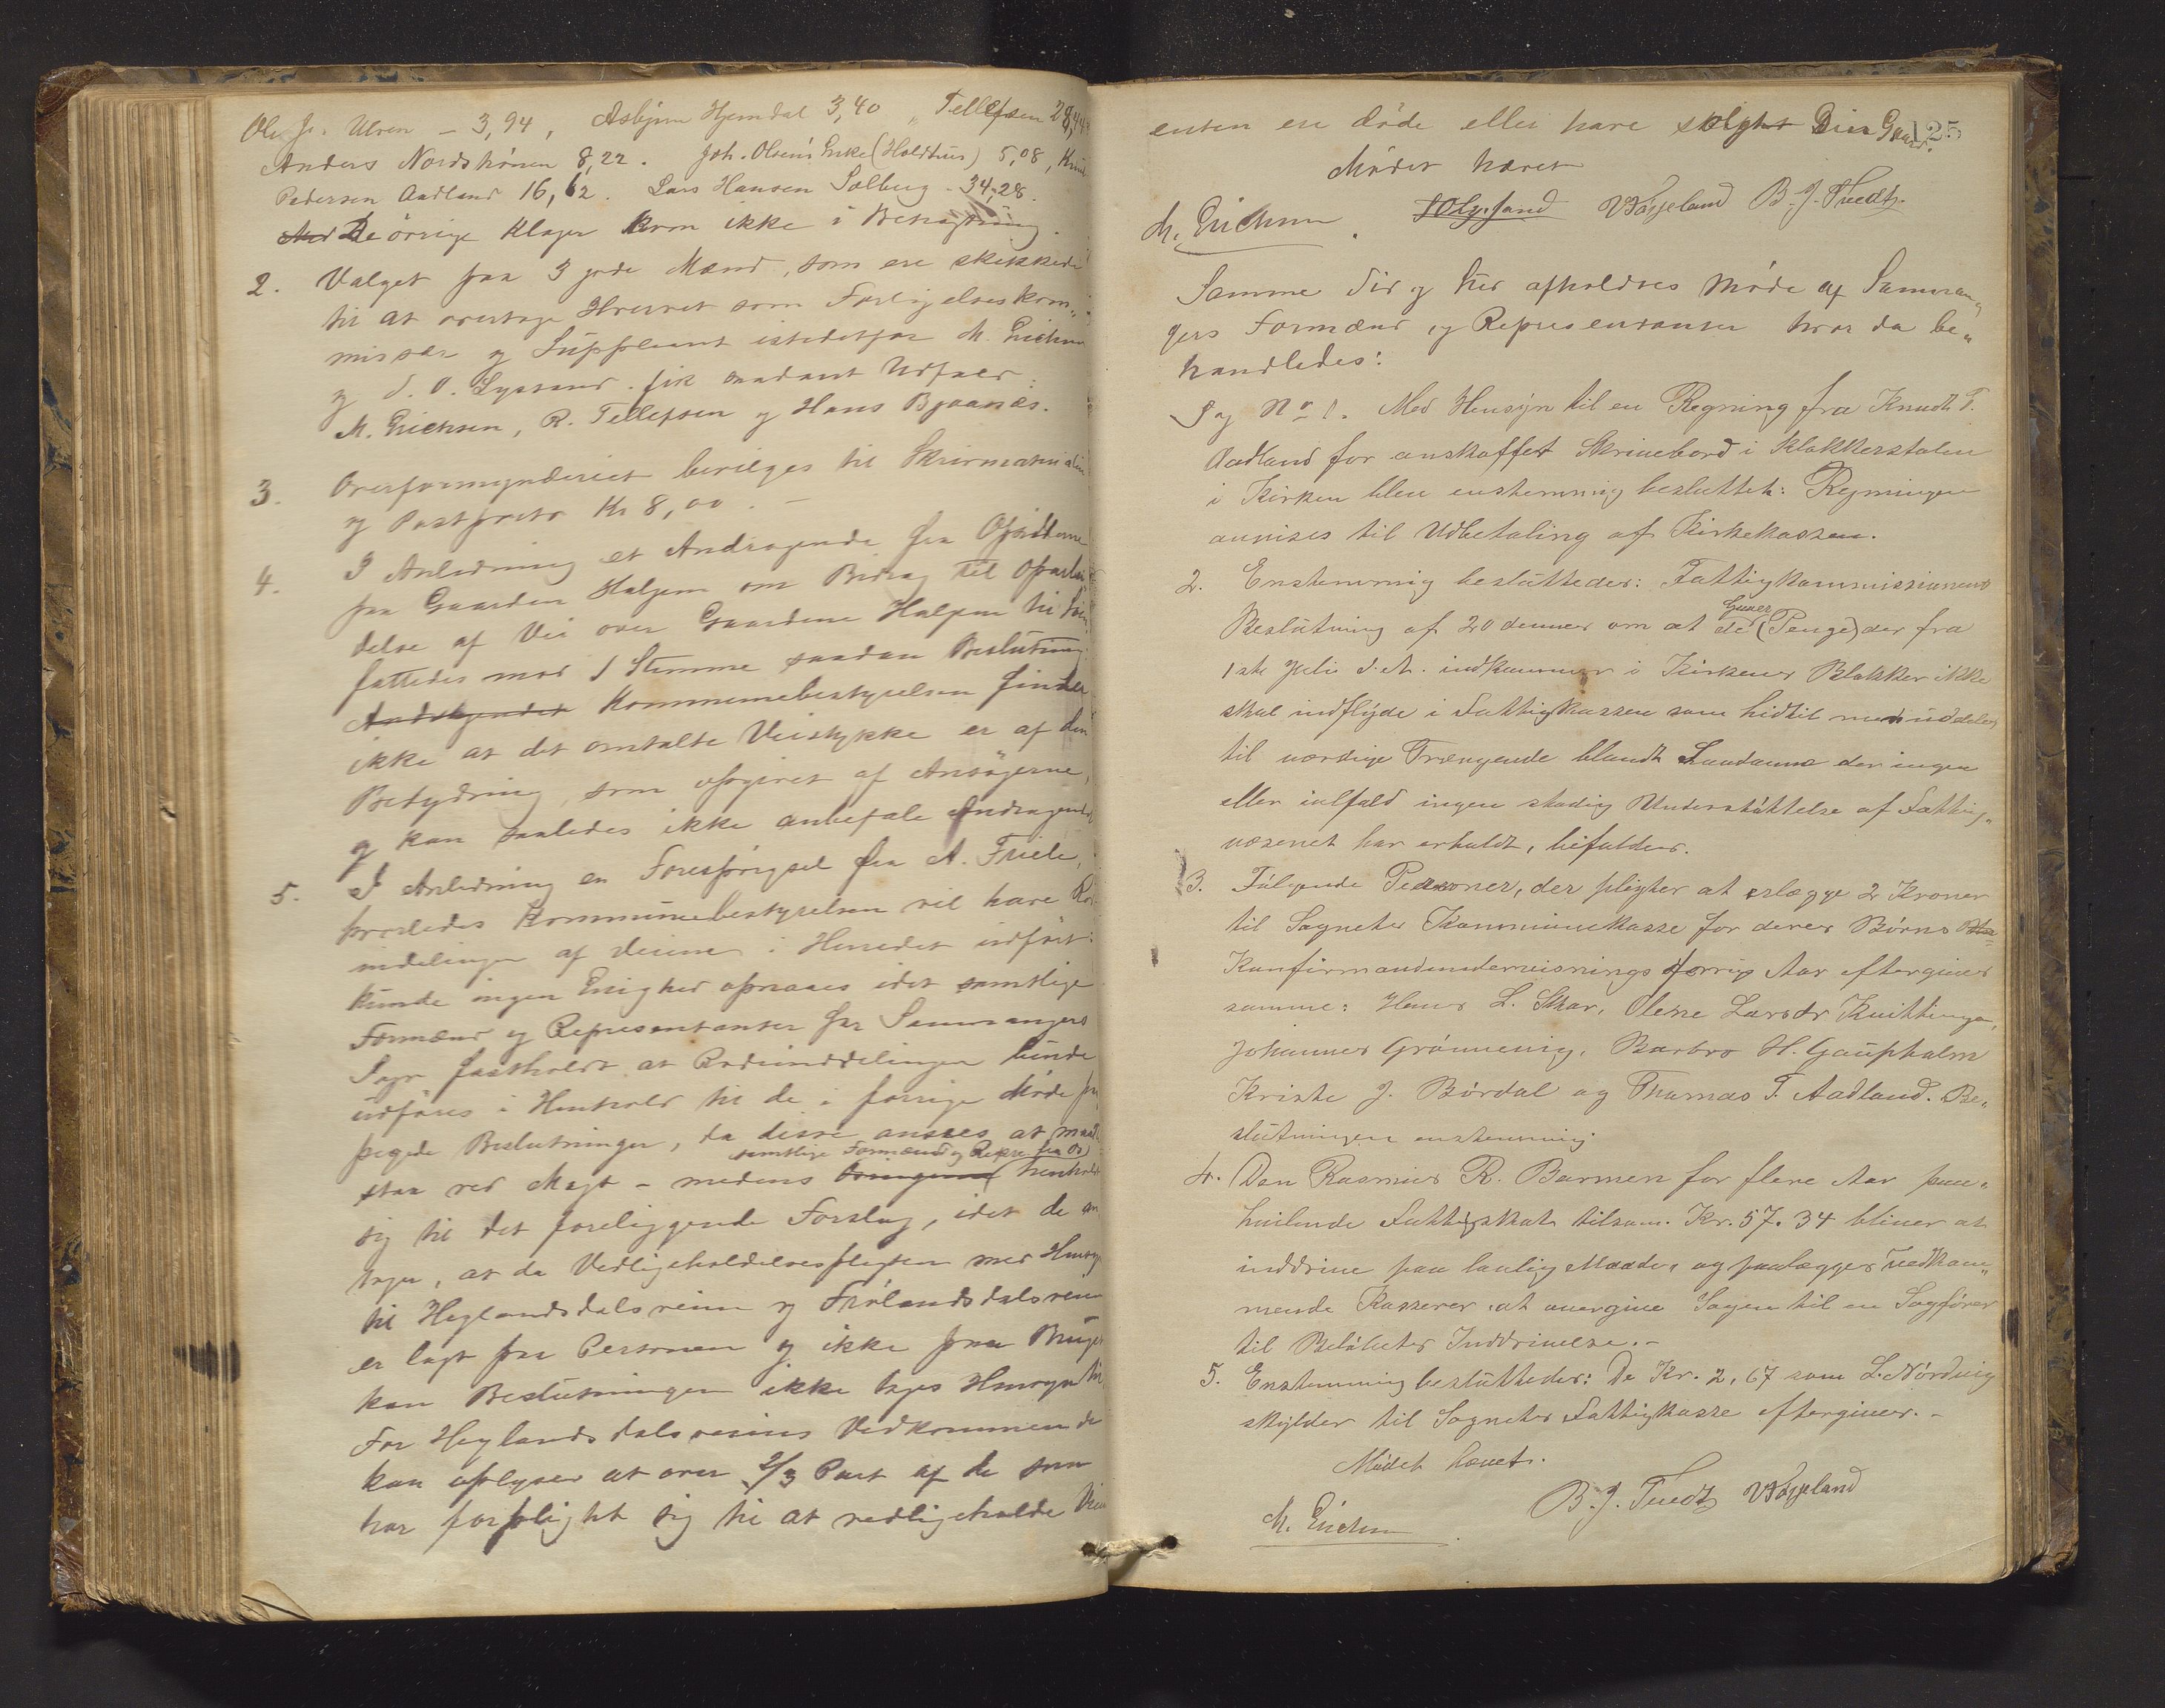 Ole J. Ulven – 3,94, Asbjørn Hjemdal 3,40, Tellefsen 28,44
Anders Nordstrønen 8,22. Joh. Olsens Enke (Holdhus) 5,08, Knud
Pedersen Aadland 16,62. Lars Hansen Solberg – 34,28.
De øvrige Klager kom ikke i Betragtning.
2. Valget paa 3 gode Mænd, som ere skikkede
til at overtage Hvervet som Forligelseskom„
missær og Suppleant istedetfor M. Erichsen
og S. O. Lyssand fik saadant Udfald:
M. Erichsen, R. Tellefsen og Hans Bjaanæs.
3. Overformynderiet bevilges til Skrivmaterialier
og Postporto Kr 8,00. –
4. I Anledning et Andragende fra Opsidderne
paa Gaarden Halgjem om Bidrag til Oparbei
delse af Vei over Gaardene Halgjem til
fattedes mod 1 Stemme saadan Beslutning:
Andragendet Kommunebestyrelsen finder
ikke at det omtalte Veistykke er af den
Betydning, som opgivet af Ansøgerne,
og kan saaledes ikke anbefale Andragendet
5. I Anledning en Forespørgsel fra A. Friele,
hvorledes Kommunebestyrelsen vil have Ro
inddelingen af Veiene i Herredet udført:
kunde ingen Enighed opnaaes idet samtlige
Formænd og Representanter for Samnangers
Sogn fastholdt at Rodeinddelingen kunde
udføres i Henhold til de i forrige Møde
Beslutninger, da disse ansees at maatte
samtlige Formænd og Repr. fra Os)
staa ved Magt – medens Osingerne henholdt
sig til det foreliggende Forslag, idet de an
tager, at da Vedligeholdelsespligten med Hensyn
til Heglandsdalsveien og Frølandsdalsveien
er lagt paa Personen og ikke paa Bruget
kan Beslutningen ikke tages Hensyn til
For Heglandsdalsveiens Vedkommende
kan oplyses at over 2/3 Part af de som
har forpligtet sig til at vedligeholde Veien
enten ere døde eller have solgt sin Gaard. 125
Mødet hævet
M. Erichsen. Vaageland B. J. Tvedt
Samme Tid og Sted afholdtes Møde af Samnan„
gers Formænd og Representanter hvor da be„
handledes:
Sag No 1. Med Hensyn til en Regning fra Knudt P.
Aadland for anskaffet Skrivebord i Klokkerstolen
i Kirken blev enstemmig besluttet: Regningen
anvises til Udbetaling af Kirkekassen.
2. Enstemmig besluttedes: Fattigkommissionens
Gaver
Beslutning af 20 dennes om at de (Penge) der fra
1ste Juli d. A. indkommer i Kirkens Blokker ikke
skal indflyde i Fattigkassen som hidtil men uddeles
til værdige Trængende blandt Saadanne der ingen
eller ialfald ingen stadig Understøttelse af Fattig„
væsenet har erholdt, bifaldes.
3. Følgende Personer, der pligter at erlægge 2 Kroner
til Sognets Kommunekasse for deres Børns
Konfirmandundervisnings forrige Aar eftergives
samme: Hans L. Skar, Olene Larsdr Kvittingen,
Johannes Grønnevig, Barbro H. Gaupholm
Kriste J. Børdal og Thomas T. Aadland. Be„
slutningen enstemmig.
4. Den Rasmus R. Barmen for flere Aar paa„
hvilende Fattigskat tilsam. Kr. 57.34 bliver at
inddrive paa lovlig Maade, og paalægges vedkom„
mende Kasserer at overgive Sagen til en Sagfører
til Beløbets Inddrivelse. –
5. Enstemmig besluttedes: De Kr. 2,67 som L. Nordvig
skylder til Sognets Fattigkasse eftergives. –
Mødet hævet.
M. Erichsen. B. J. Tvedt Vaageland